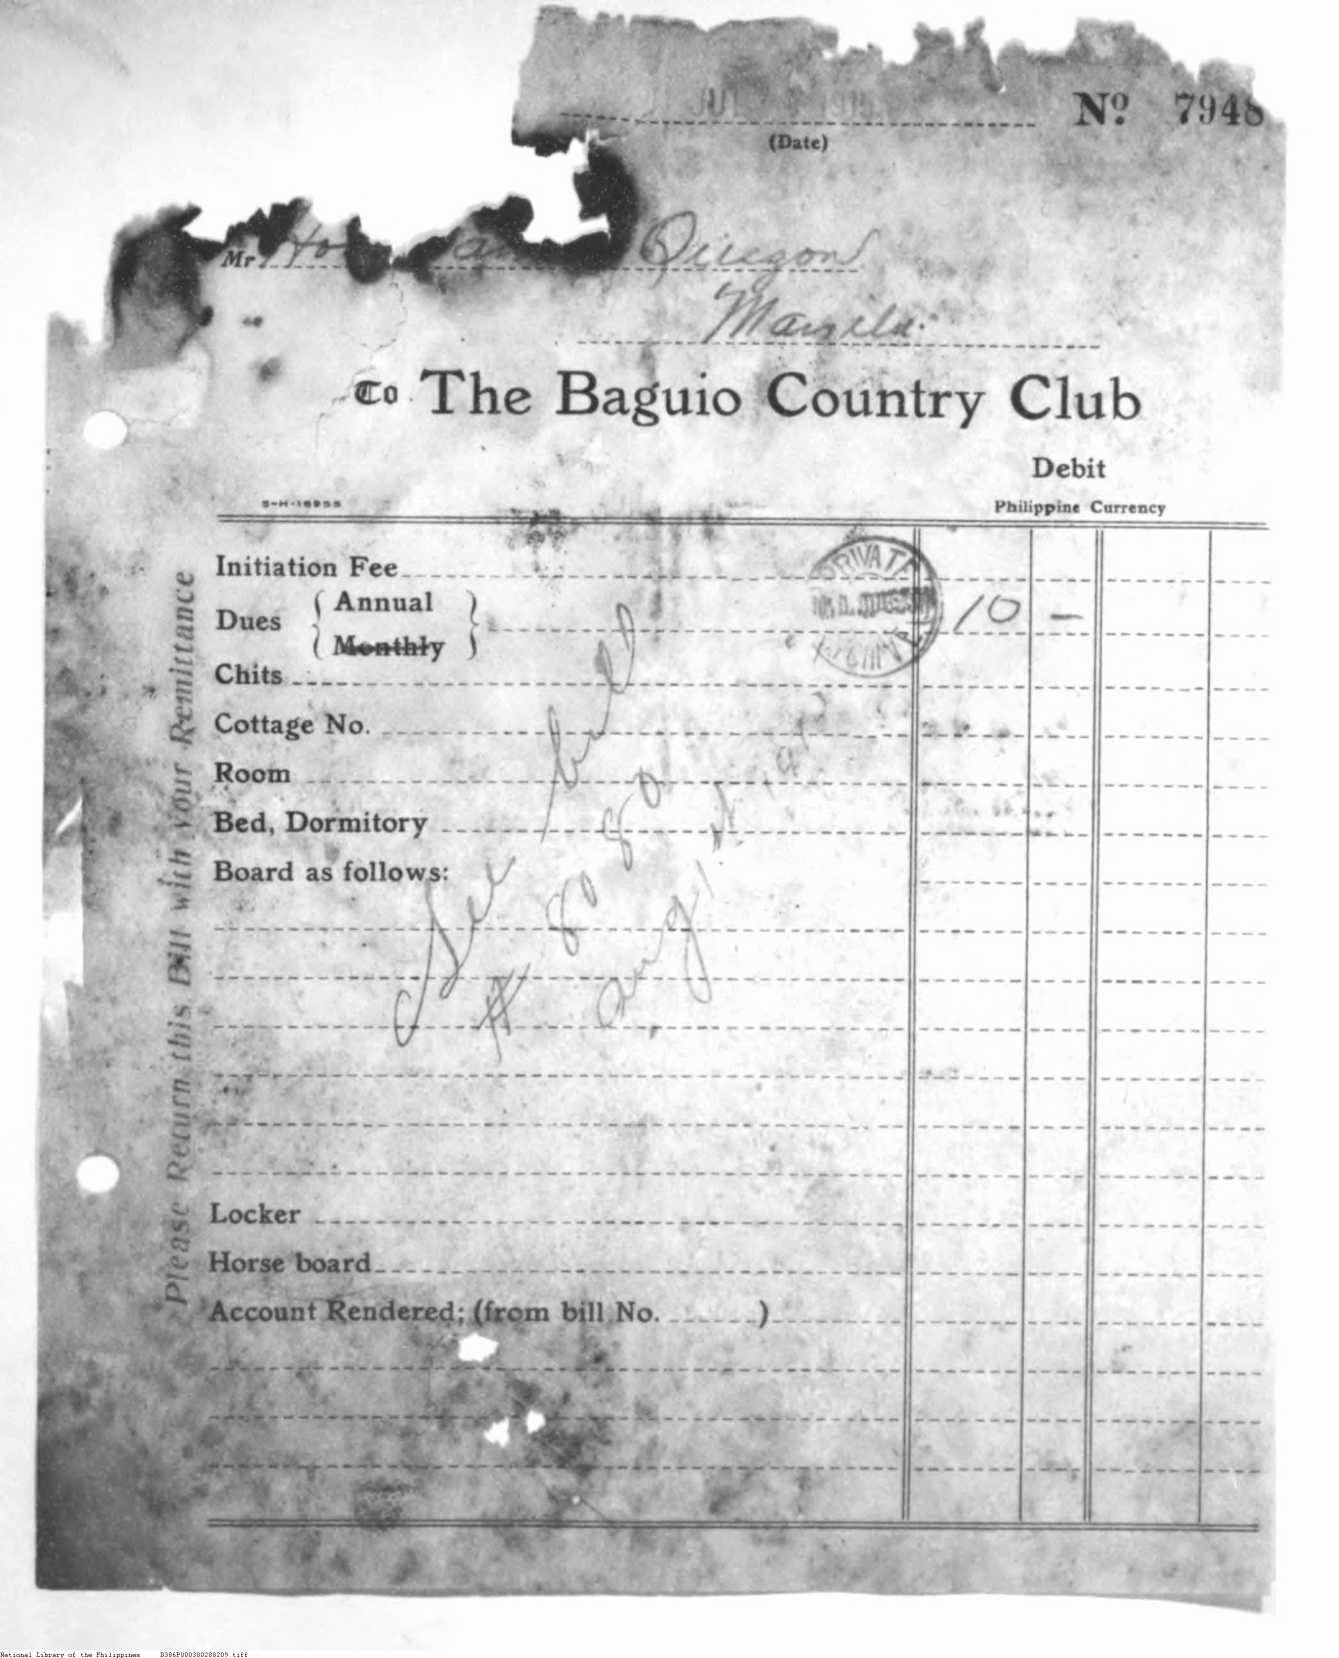 JUL 1919
(Date)
No. 7948
Mr. Hon.
Manila.
To The Baguio Country Club
Debit
Philippine Currency
S-H-16955
Initiation Fee
Dues { Annual } 10 —
Monthly
PRIVATE
Chits
Cottage No.
Room
Bed, Dormitory
Board as follows:
See bill
# 80 80
Aug.
Locker
Horse board
Account Rendered; (from bill No. )
Please Return this Bill with your Remittance
National Library of the Philippines D386P000300280209.tiff